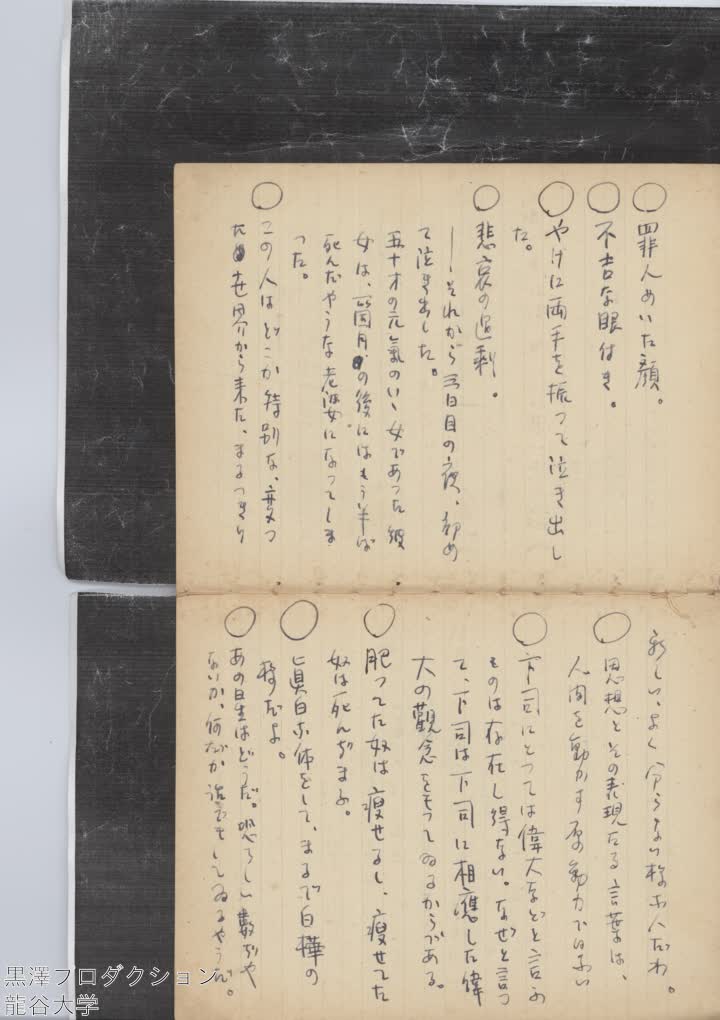 ○罪人めいた顔。
○不吉な眼付き。
○やけに両手を振つて泣き出し
た。
○悲哀の過剰。
―それから三日目の夜、初め
て泣き出した。
五十才の元氣のいゝ女であつた彼
女は、一箇月の後にはもう半ば
死んだやうな老婆になつてしま
つた。
○この人はどこか特別な、変つ
た世界から来た、まるつきり
新しい、よく分らない様な人だわ。
○思想とその表現たる言葉は、
人間を動かす原動力ではない
○下司にとつては偉大などと言ふ
ものは存在し得ない。なぜと言つ
て、下司は下司に相應した偉
大の觀念をもつてゐるからである。
○肥つてた奴は瘦せるし、瘦せてた
奴は死んぢまふ。
○眞白な体をして、まるで白樺の
様だよ。
○あの星はどうだ。恐ろしい數ぢや
ないか、何だか話でもしてゐるやうだ。
黒澤プロダクション
龍谷大学